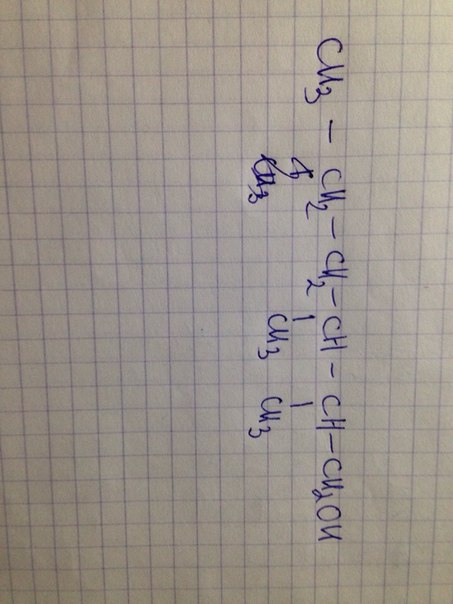 CH3 – CH2 – CH2 – CH – CH – CH2OH
CH3 CH3